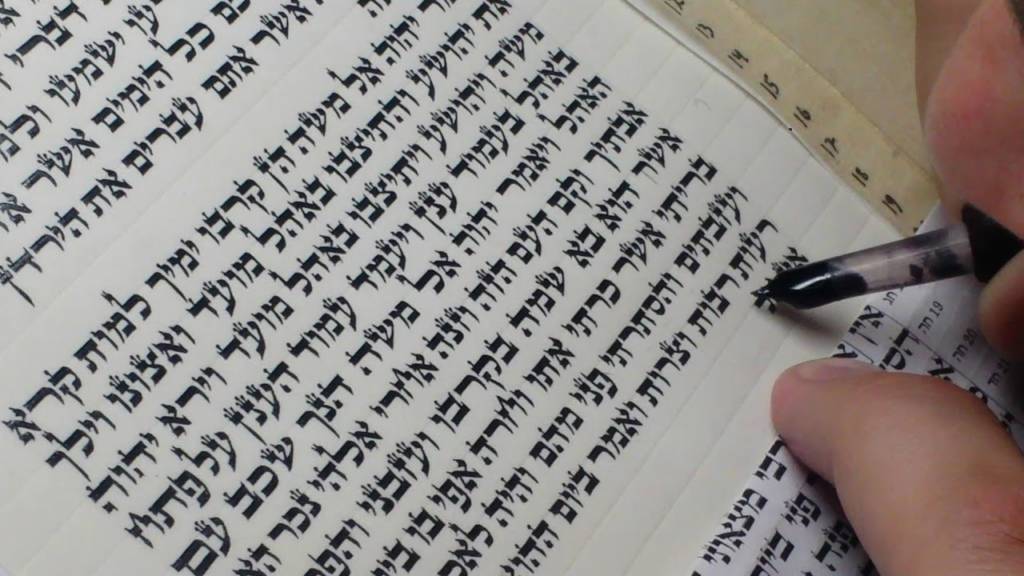 ישמעו
כל הימים אשר
אשר אתם עברים את הירדן
יהוה אל משה הן קרבו ימיך למות קרא
את יהושע והתיצבו באהל מועד ואצונו וילך
משה ויהושע ויתיצבו באהל מועד וירא יהוה
באהל בעמוד ענן ויעמד עמוד הענן על פתח
האהל ויאמר יהוה אל משה הנך שכב עם
אבתיך וקם העם הזה וזנה אחרי אלהי נכר
אשר הוא בא שמה בקרבו ועזבני והפר
בריתי אשר כרתי אתו וחרה אפי בו
ועזבתים והסתרתי פני מהם והיה
רעות רבות וצרות ואמר ביום ההוא
יד
טו
טז
יז
יח
יט
אין
19
20